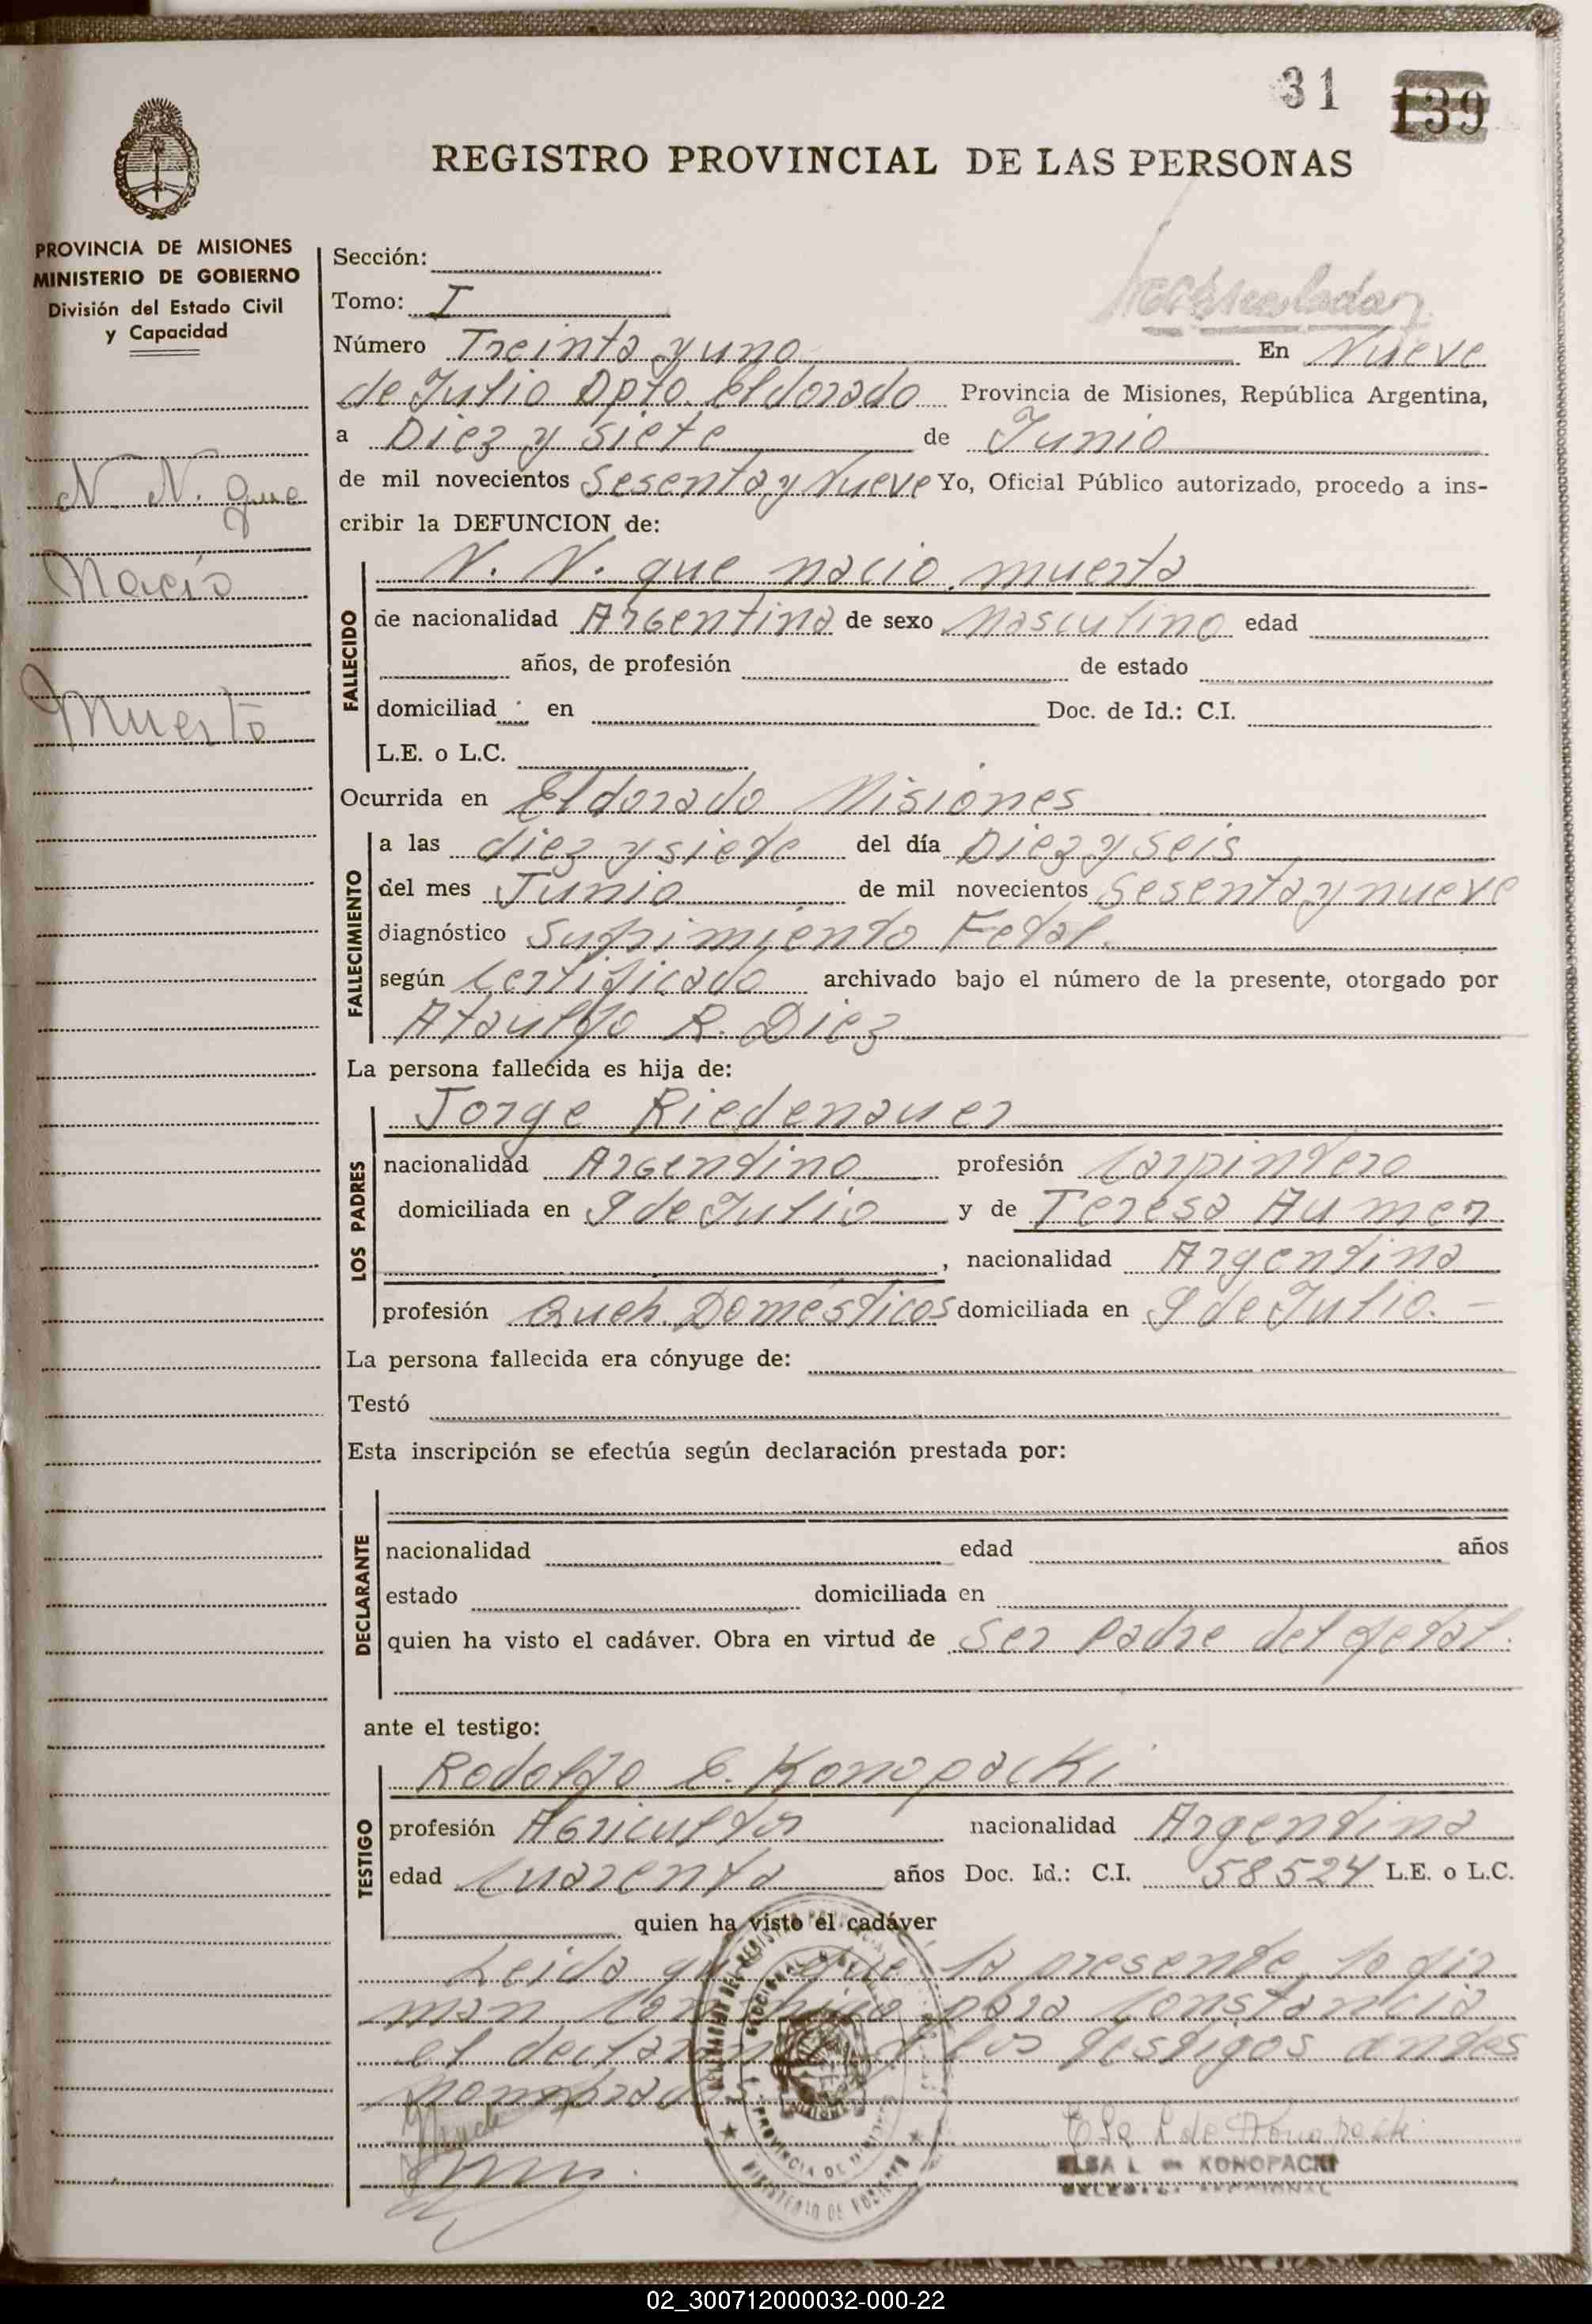 31 139
REGISTRO PROVINCIAL DE LAS PERSONAS
PROVINCIA DE MISIONES
MINISTERIO DE GOBIERNO
División del Estado Civil
y Capacidad
N. N. que
Nació
Muerto
Sección:
Tomo: I
Número Treinta y uno En Nueve
de Julio Dpto. Eldorado Provincia de Misiones, República Argentina,
a Diez y siete de Junio
de mil novecientos Sesenta y Nueve Yo, Oficial Público autorizado, procedo a ins-
cribir la DEFUNCION de:
N. N. que nacio muerta
FALLECIDO
de nacionalidad Argentina de sexo Masculino edad
años, de profesión de estado
domiciliad en Doc. de Id.: C.I.
L.E. o L.C.
Ocurrida en Eldorado Misiones
FALLECIMIENTO
a las diez y siete del día Diez y seis
del mes Junio de mil novecientos Sesenta y nueve
diagnóstico Sufrimiento Fetal.
según Certificado archivado bajo el número de la presente, otorgado por
Ataulfo R. Diez
La persona fallecida es hija de:
LOS PADRES
Jorge Riedenauer
nacionalidad Argentino profesión Carpintero
domiciliada en 9 de Julio y de Teresa Aumer
, nacionalidad Argentina
profesión Queh. Domésticos domiciliada en 9 de Julio. -
La persona fallecida era cónyuge de:
Testó
Esta inscripción se efectúa según declaración prestada por:
DECLARANTE
nacionalidad edad años
estado domiciliada en
quien ha visto el cadáver. Obra en virtud de ser Padre del fetal.
ante el testigo:
TESTIGO
Rodolfo E. Konopacki
profesión Agricultor nacionalidad Argentina
edad Cuarenta años Doc. Id.: C.I. 58524 L.E. o L.C.
quien ha visto el cadáver
Leida que fué la presente, lo fir
man conmigo para constancia
el declarante y los testigos antes
nombrados.
ELSA L. de KONOPACKI
PROVINCIA DE MISIONES
MINISTERIO DE GOBIERNO
02_300712000032-000-22